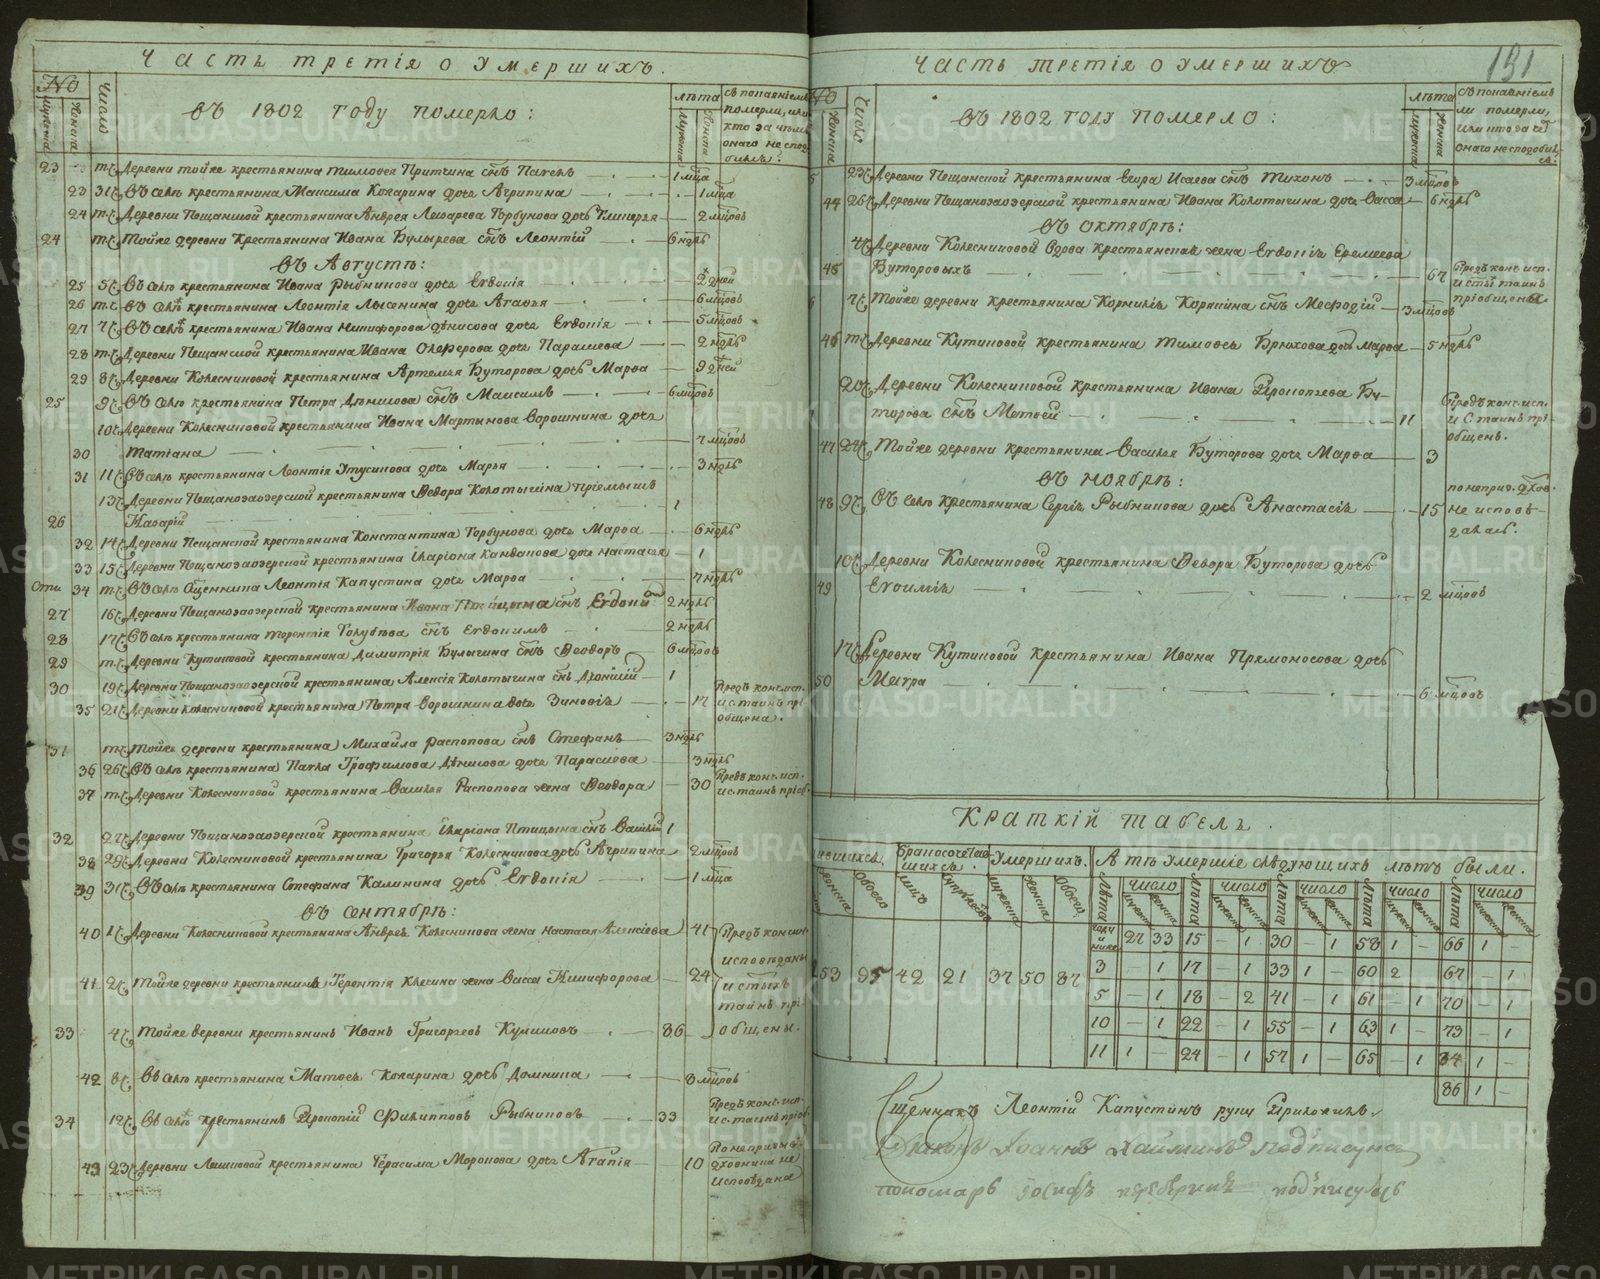 Часть третія о умершихъ.
№
Мужеска
Женска
Число
Въ 1802 году померло:
лѣта
Мужеска
Женска
Съ покаяніемъ
померли, или
кто за чемъ
онаго не спод
билъ.
23 т.ч. Деревни тойже крестьянина Тимофея сн҃ъ Павелъ 1 мц҃а
23 31ч. Въ селѣ крестьянина Максима Кокарина дочь Агрипина 1 мц҃а
24 т.ч. Деревни Пещанской крестьянина Андрея Горбунова дочь 2 мц҃овъ
24 т.ч. Тойже деревни крестьянина Ивана Булырева сн҃ъ Леонтій 6 нд҃лъ
Въ Августѣ:
25 5ч. Въ селѣ крестьянина Ивана Рыбникова дочь Евдокія 2 дней
26 т.ч. Въ селѣ крестьянина Леонтія Лысанина дочь Агафья 6 мц҃овъ
27 7ч. Въ селѣ крестьянина Ивана Никифорова Дѣнисова дочь Евдокія 5 мц҃овъ
28 т.ч. Деревни Пещанской крестьянина Ивана Олферова дочь Парасковья 2 нд҃лъ
29 8ч. Деревни Колесниковой крестьянина Артемья Буторова дочь Марфа 9 дней
25 9ч. Въ селѣ крестьянина Петра Дѣнисова сн҃ъ Максимъ 6 мц҃овъ
10ч. Деревни Колесниковой крестьянина Ивана Мартынова Ворошнина дочь
30 Татіана 7 мц҃овъ
31 11ч. Въ селѣ крестьянина Леонтія Утусикова дочь Марья 3 нд҃лъ
13ч. Деревни Пещаноозерской крестьянина Ѳедора Колотыгина пріемышъ
26 Назарій 1
32 14ч. Деревни Пещанской крестьянина Константина Горбунова дочь Марфа 6 нд҃лъ
33 15ч. Деревни Пещаноозерской крестьянина Иларіона дочь Настасья 1
34 т.ч. Въ селѣ Сщ҃енника Леонтія Капустина дочь Марфа 7 нд҃лъ
27 16ч. Деревни Пещаноозерской крестьянина Ивана Птицына сн҃ъ Евдоки 2 нд҃лъ
28 17ч. Въ селѣ крестьянина Терентія Голубѣва сн҃ъ Евдокимъ 2 нд҃лъ
29 т.ч. Деревни Кутиковой крестьянина Димитрія Булыгина сн҃ъ Ѳеодоръ 6 мц҃овъ
30 19ч. Деревни Пещаноозерской крестьянина Алексія Колотыгина сн҃ъ 1
35 21ч. Деревни Колесниковой крестьянина Петра Ворошнина дочь Зиновія 17 Предъ конч. исп. и с. таинъ прі общена.
31 т.ч. Тойже деревни крестьянина Михайла Распопова сн҃ъ Стефанъ 3 нд҃лъ
36 26ч. Въ селѣ крестьянина Павла Трофимова Дѣнисова дочь Парасковья 3 нд҃лъ
37 т.ч. Деревни Колесниковой крестьянина Василья Распопова жена Ѳеодора 30 Предъ конч. исп. и с. таинъ пріоб.
32 27ч. Деревни Пещаноозерской крестьянина Иларіона Птицына сн҃ъ Василій 1
38 29ч. Деревни Колесниковой крестьянина Григорья Колесникова дочь Агрипина 2 мц҃овъ
39 31ч. Въ селѣ крестьянина Стефана Калинина дочь Евдокія 1 мц҃а
Въ Сентябрѣ:
40 1ч. Деревни Колесниковой крестьянина Андрея Колесникова жена Настасья Алексіева 41 Предъ кончин.
исповѣданы
41 2ч. Тойже деревни крестьянина Терентія жена Васса Никифорова 24 и с҃тыхъ
таинъ прі
33 4ч. Тойже деревни крестьянинъ Иванъ Григорьевъ Куликовъ 86 общены.
42 8ч. Въ селѣ крестьянина Матвѣя Кокарина дочь Домника 8 мц҃овъ
34 12ч. Въ селѣ крестьянинъ Прокопій Филипповъ Рыбниковъ 33 Предъ конч. исп. и с. таинъ пріоб.
43 23ч. Деревни крестьянина Герасима Миронова дочь Агапія 10 исповѣдана
Часть третія о умершихъ
191
№
Женска
Число
Въ 1802 году померло:
лѣта
Мужеска
Женска
Съ покаяніемъ
ли померли,
или кто за
онаго не сподобил
5 23ч. Деревни Пещанской крестьянина Егора Исаева сн҃ъ Тихонъ 3 мц҃овъ
44 26ч. Деревни Пещаноозерской крестьянина Ивана Колотыгина дочь Васса 6 нд҃лъ
Въ октябрѣ:
4ч. Деревни Колесниковой вдова крестьянская жена Евдокія Еремеева
45 Буторовыхъ 67 Предъ конч. исп. и с҃ты таинъ пріобщена.
6 7ч. Тойже деревни крестьянина Корнилія Корякина сн҃ъ Мефодій 3 мц҃овъ
46 т.ч. Деревни Кутиковой крестьянина Тимофея Брюхова дочь Марфа 5 нд҃лъ
20ч. Деревни Колесниковой крестьянина Ивана Прокопьева Бу-
торова сн҃ъ Матвей 11 Предъ конч. исп. и С. таинъ прі общен.
47 24ч. Тойже деревни крестьянина Василья Буторова дочь Марфа 3
Въ ноябрѣ:
48 9ч. Въ селѣ крестьянина Сергія Рыбникова дочь Анастасія 15 не исповѣ- далась.
10ч. Деревни Колесниковой крестьянина Ѳедора Буторова дочь
49 Евфимія 2 мц҃овъ
17ч. Деревни Кутиковой крестьянина Ивана Прямоносова дочь
50 Мавра 6 мц҃овъ
Краткій табель.
Бракосочетав шихся Умершихъ. А тѣ умершіе слѣдующихъ лѣтъ были.
Женска Обоего лицъ Супружествъ Мужеска Женска Обоего Лѣта число Лѣта число Лѣта число Лѣта число Лѣта число
53 95 42 21 37 50 87
27 33 15 – 1 30 – 1 58 1 – 66 1 –
3 – 1 17 – 1 33 1 – 60 2 67 – 1
5 – 1 18 – 2 41 – 1 61 – 1 70 – 1
10 – 1 22 – 1 55 – 1 63 1 – 73 – 1
11 1 – 24 – 1 57 1 – 65 – 1 84 1 –
86 1 –
Сщ҃енникъ Леонтій Капустинъ руку приложилъ
Діаконъ Іоаннъ подписуюсь
пономарь Іосифъ подписуюсь
METRIKI.GASO-URAL.RU